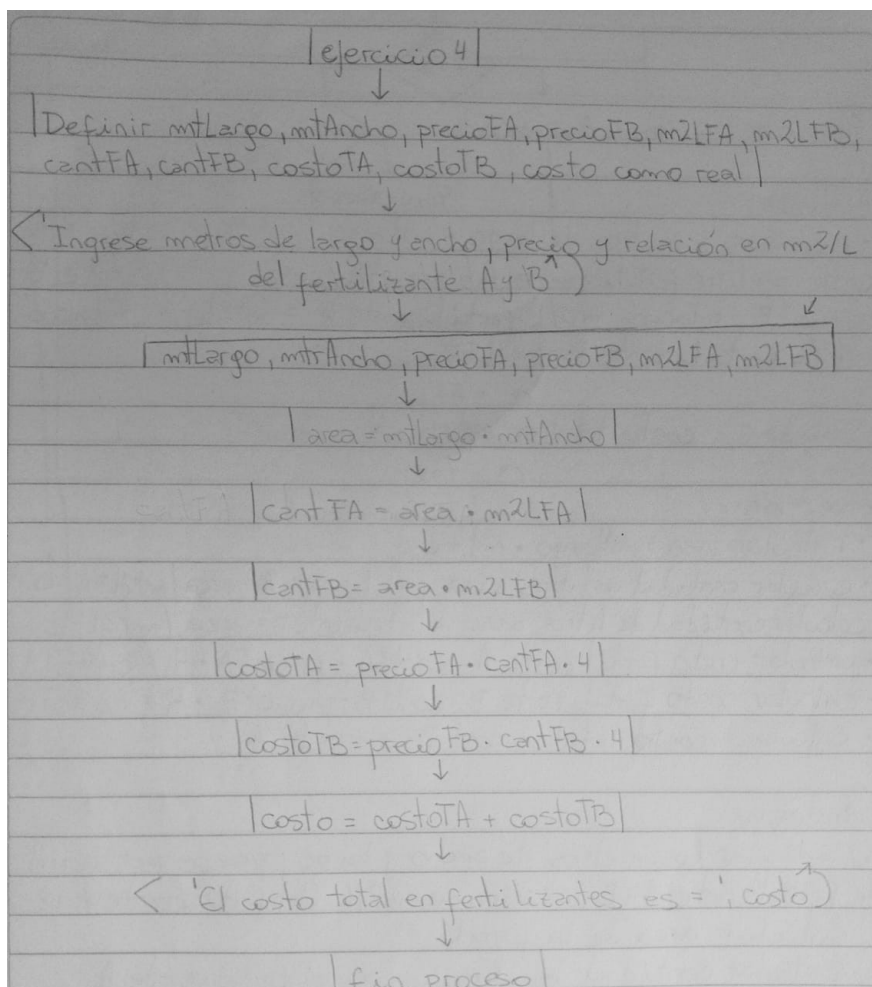 ejercicio 4
Definir mtLargo, mtAncho, precioFA, precioFB, m2LFA, m2LFB,
cantFA, cantFB, costoTA, costoTB, costo como real
'Ingrese metros de largo y ancho, precio y relación en m2/L
del fertilizante A y B'
mtLargo, mtrAncho, precioFA, precioFB, m2LFA, m2LFB
area = mtLargo · mtAncho
cantFA = area · m2LFA
cantFB = area · m2LFB
costoTA = precioFA · cantFA · 4
costoTB = precioFB · cantFB · 4
costo = costoTA + costoTB
'El costo total en fertilizantes es = ', costo
fin proceso